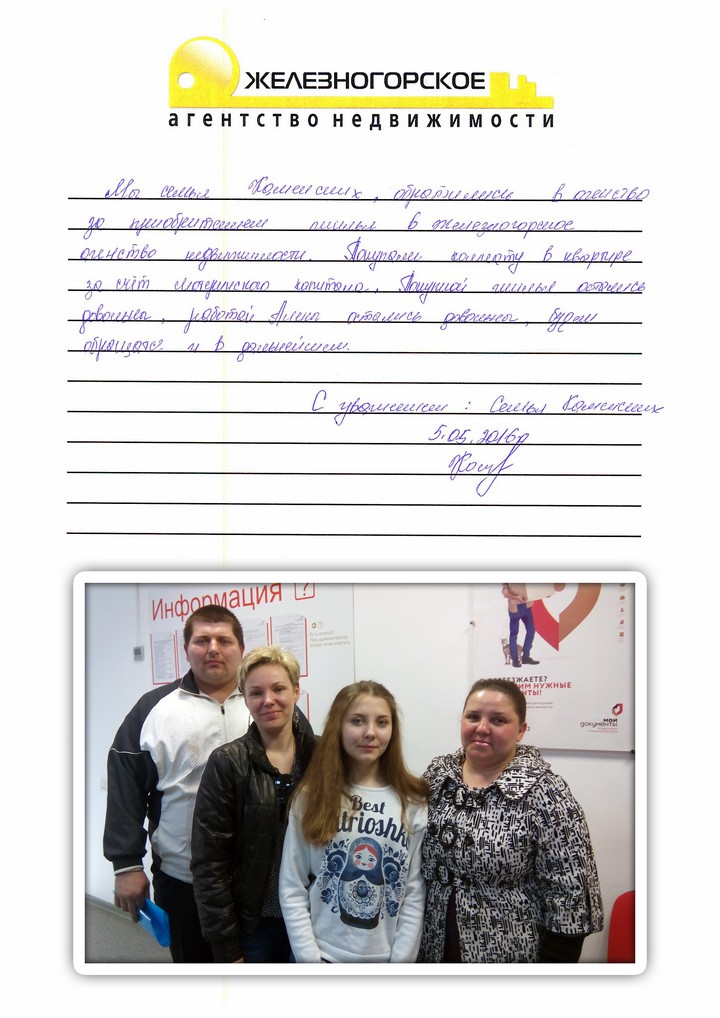 ЖЕЛЕЗНОГОРСКОЕ
агентство недвижимости
Мы семья Каменских, обратились в агенство
за приобритением жилья в железногорское
агенство недвижимости. Покупали комнату в квартире
за счёт материнского капитала, Покупкой жилья остались
довольны, работой Алены остались довольны, будем
обращатся и в дальнейшем.
С уважением : Семья Каменских
5.05.2016г
Информация ?
Есть вопрос?
ЕЗЖАЕТЕ?
ИМ НУЖНЫЕ
ЕНТЫ!
МОИ
документы
Best
atrioshk